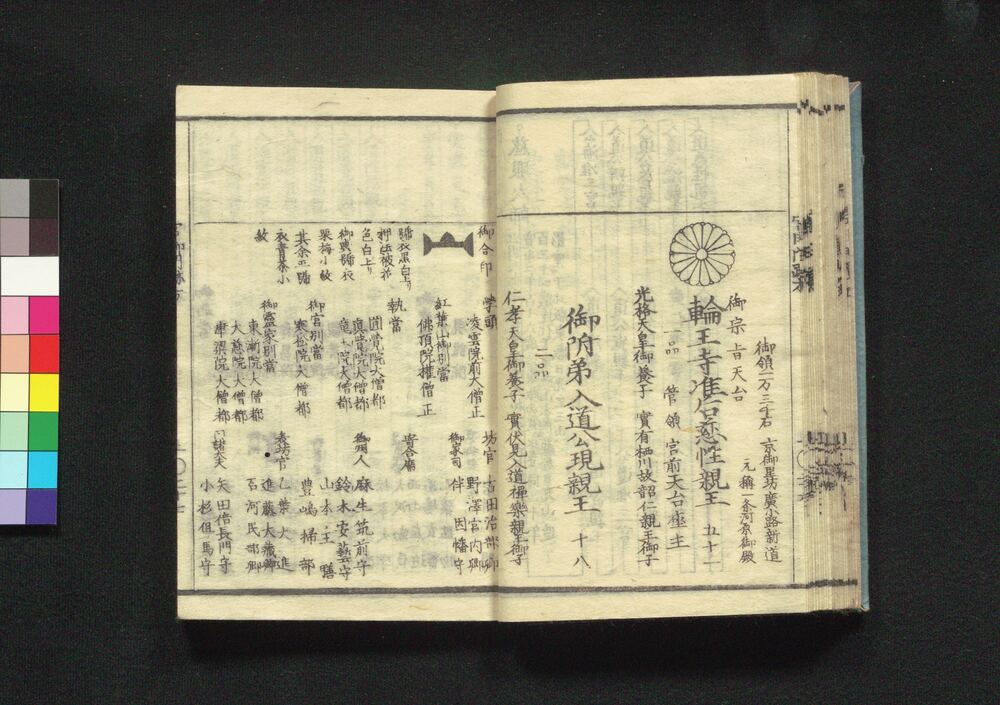 御領一万三千石 京御里坊廣小路新道
御宗旨天台 元稱一条河原御殿
輪王寺准后慈性親王 五十一
一品 管領宮前天台座主
光格天皇御養子 實有栖川故韶仁親王御子
御附弟入道公現親王 十八
二品
仁孝天皇御養子 實伏見入道禪樂親王御子
御合印
學頭
凌雲院前大僧正
紅葉山御別當
佛頂院權僧正
執當
圓覺院大僧都
真覺院大僧都
龍王院大僧都
御宮別當
寒松院大僧都
御靈家別當
東漸院大僧都
大慈院大僧都
津梁院大僧都
坊官 吉田治部卿
野澤宮内卿
御家司 伴因幡守
麻生筑前守
鈴木安藝守
山本主膳
豊嶋掃部
乙葉大進
進藤大藏卿
石河民部卿
諸大夫 矢田信長門守
小杉但馬守